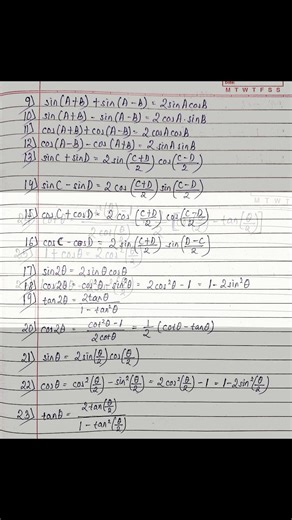 M T W T F S S
9) sin(A+B) + sin(A-B) = 2sinA cosB
10) sin(A+B) - sin(A-B) = 2cosA·sinB
11) cos(A+B)+cos(A-B) = 2cosA cosB
12) cos(A-B) - cos(A+B) = 2sinA sinB
13) sinC + sinD = 2 sin(C+D/2) cos(C-D/2)
14) sinC - sinD = 2 cos(C+D/2) sin(C-D/2)
15) cosC + cosD = 2 cos(C+D/2) cos(C-D/2)
16) cosC - cosD = 2 sin(C+D/2) sin(D-C/2)
17) sin2θ = 2sinθ cosθ
18) cos2θ = cos²θ - sin²θ = 2cos²θ-1 = 1-2sin²θ
19) tan2θ = 2tanθ / 1-tan²θ
20) cot2θ = cot²θ-1 / 2cotθ = 1/2 (cotθ - tanθ)
21) sinθ = 2sin(θ/2) cos(θ/2)
22) cosθ = cos²(θ/2) - sin²(θ/2) = 2cos²(θ/2) - 1 = 1-2sin²(θ/2)
23) tanθ = 2tan(θ/2) / 1-tan²(θ/2)